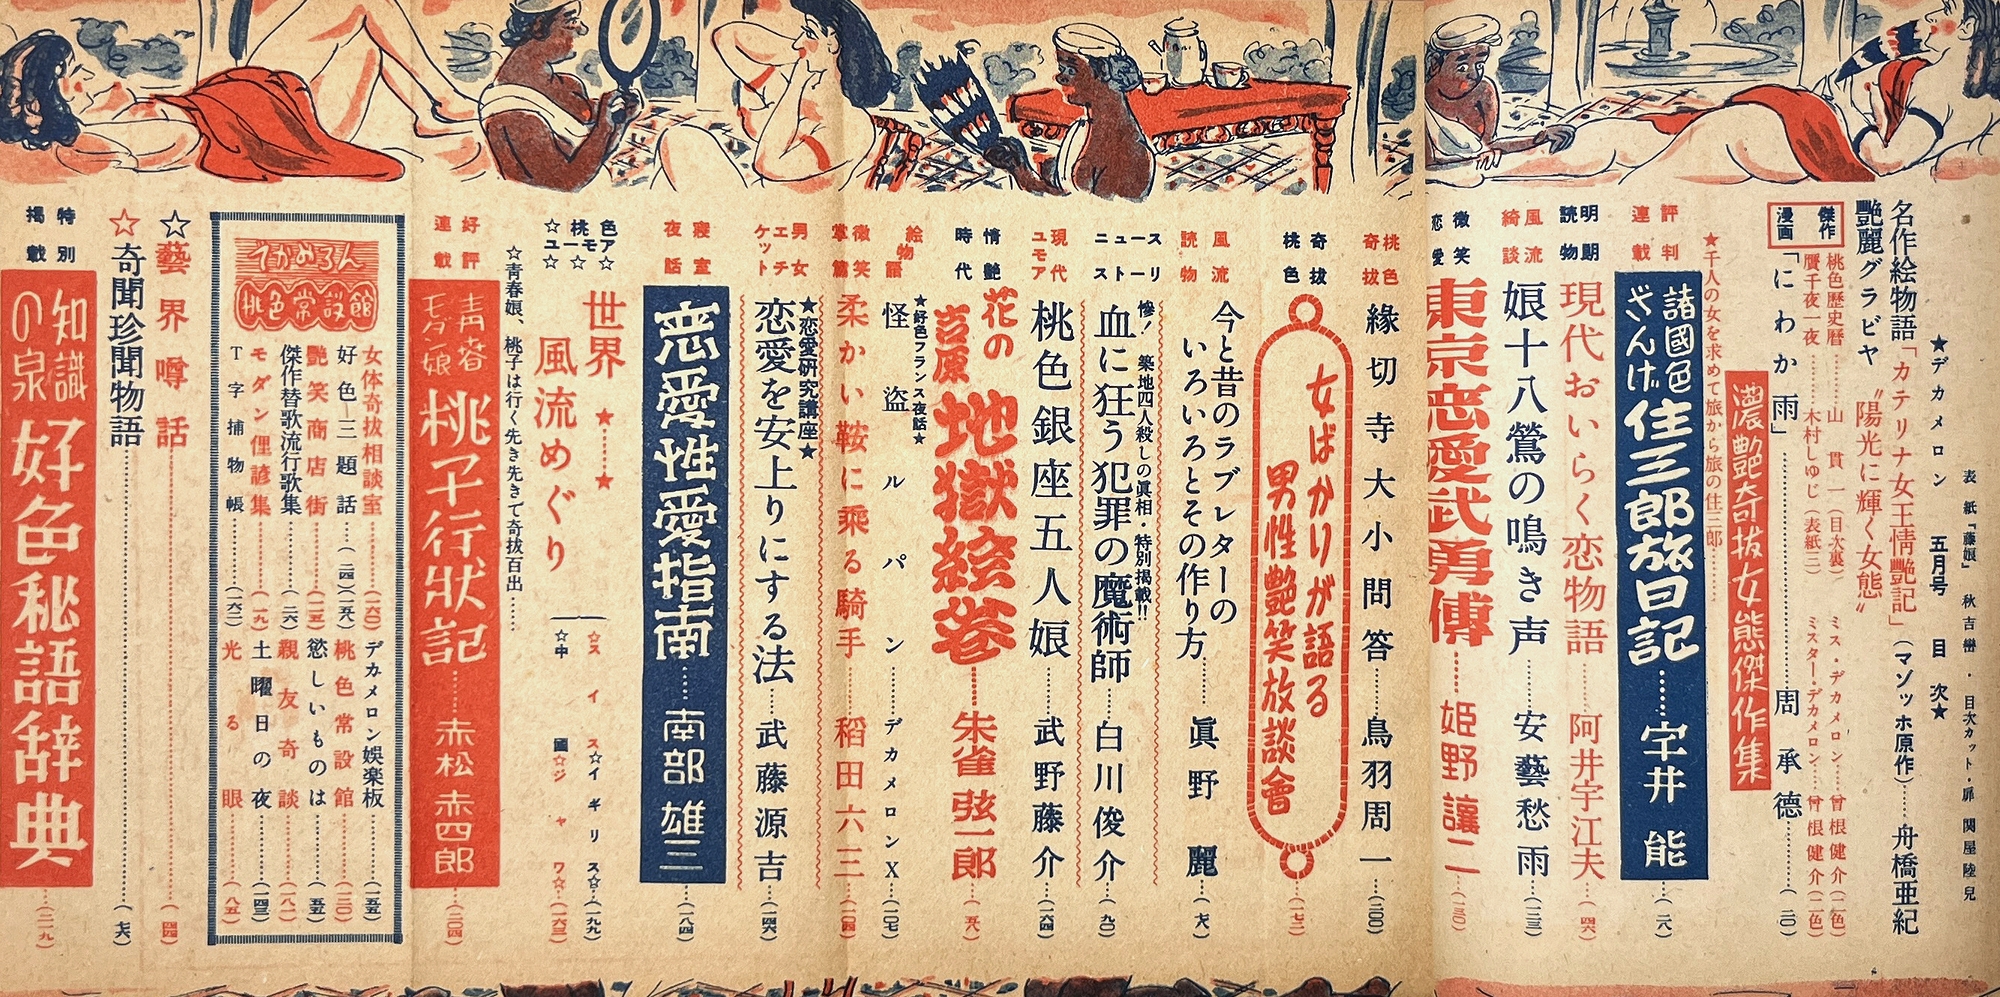 表紙「藤娘」 秋吉巒・目次カット・扉 関屋陸兒
★デカメロン 五月号 目次★
名作絵物語「カテリナ女王情艶記」(マゾッホ原作)……舟橋亜紀
艶麗グラビヤ “陽光に輝く女態”
傑作漫画
桃色歴史暦………山貫一(目次裏) ミス・デカメロン……曾根健介(二色)
贋千夜一夜………木村しゆじ(表紙三) ミスター・デカメロン……曾根健介(二色)
「にわか雨」………周承德………(二〇)
濃艶奇抜女態傑作集
★千人の女を求めて旅から旅の住三郎……
評判連載
諸國色ざんげ 住三郎旅日記……宇井能……(二八)
明朗読物
現代おいらく恋物語……阿井宇江夫……(四六)
風流綺談
娘十八鶯の鳴き声……安藝愁雨……(一三三)
微笑恋愛
東京恋愛武勇傳……姫野讓二……(一三〇)
桃色奇抜
緣切寺大小問答……鳥羽周一……(二〇〇)
奇抜桃色
女ばかりが語る
男性艶笑放談會……(一七二)
風流読物
今と昔のラブレターの
いろいろとその作り方……眞野麗……(七八)
ニュースストーリー
惨! 築地四人殺しの眞相・特別掲載!!
血に狂う犯罪の魔術師……白川俊介……(九〇)
現代ユモア
桃色銀座五人娘……武野藤介……(一六四)
情艶時代
花の吉原 地獄絵巻……朱雀弦一郎……(五八)
★好色フランス夜話★
絵物語
怪盗ルパン……デカメロンX……(一〇七)
微笑掌篇
柔かい鞍に乗る騎手……稻田六三……(一〇四)
男女エチケット
★恋愛研究講座★
恋愛を安上りにする法……武藤源吉……(一四六)
寝室夜話
恋愛性愛指南……南部雄三……(一八四)
色ア☆桃モ☆ユー☆
世界風流めぐり
★……★
☆スイス☆イギリス☆……(一九九)
☆中國☆ジャワ☆……(一六三)
☆青春娘、桃子は行く先き先きで奇抜百出……
好評連載
青春モダン娘 桃子行狀記……赤松赤四郎……(二〇四)
でかめろん
桃色常設館
女体奇抜相談室……(一六〇) デカメロン娯楽板……(一五五)
好色—三題話……(二四)(一五八) 桃色常設館……(三〇)
艶笑商店街……(一二五) 慾しいものは……(五五)
傑作替歌流行歌集……(二六) 親友奇談……(八一)
モダン俚諺集……(一九) 土曜日の夜……(一四三)
T字捕物帳……(一六二) 光る眼……(八五)
☆藝界噂話……(四四)
☆奇聞珍聞物語……(七六)
特別掲載
知識の泉 好色秘語辞典……(二一九)